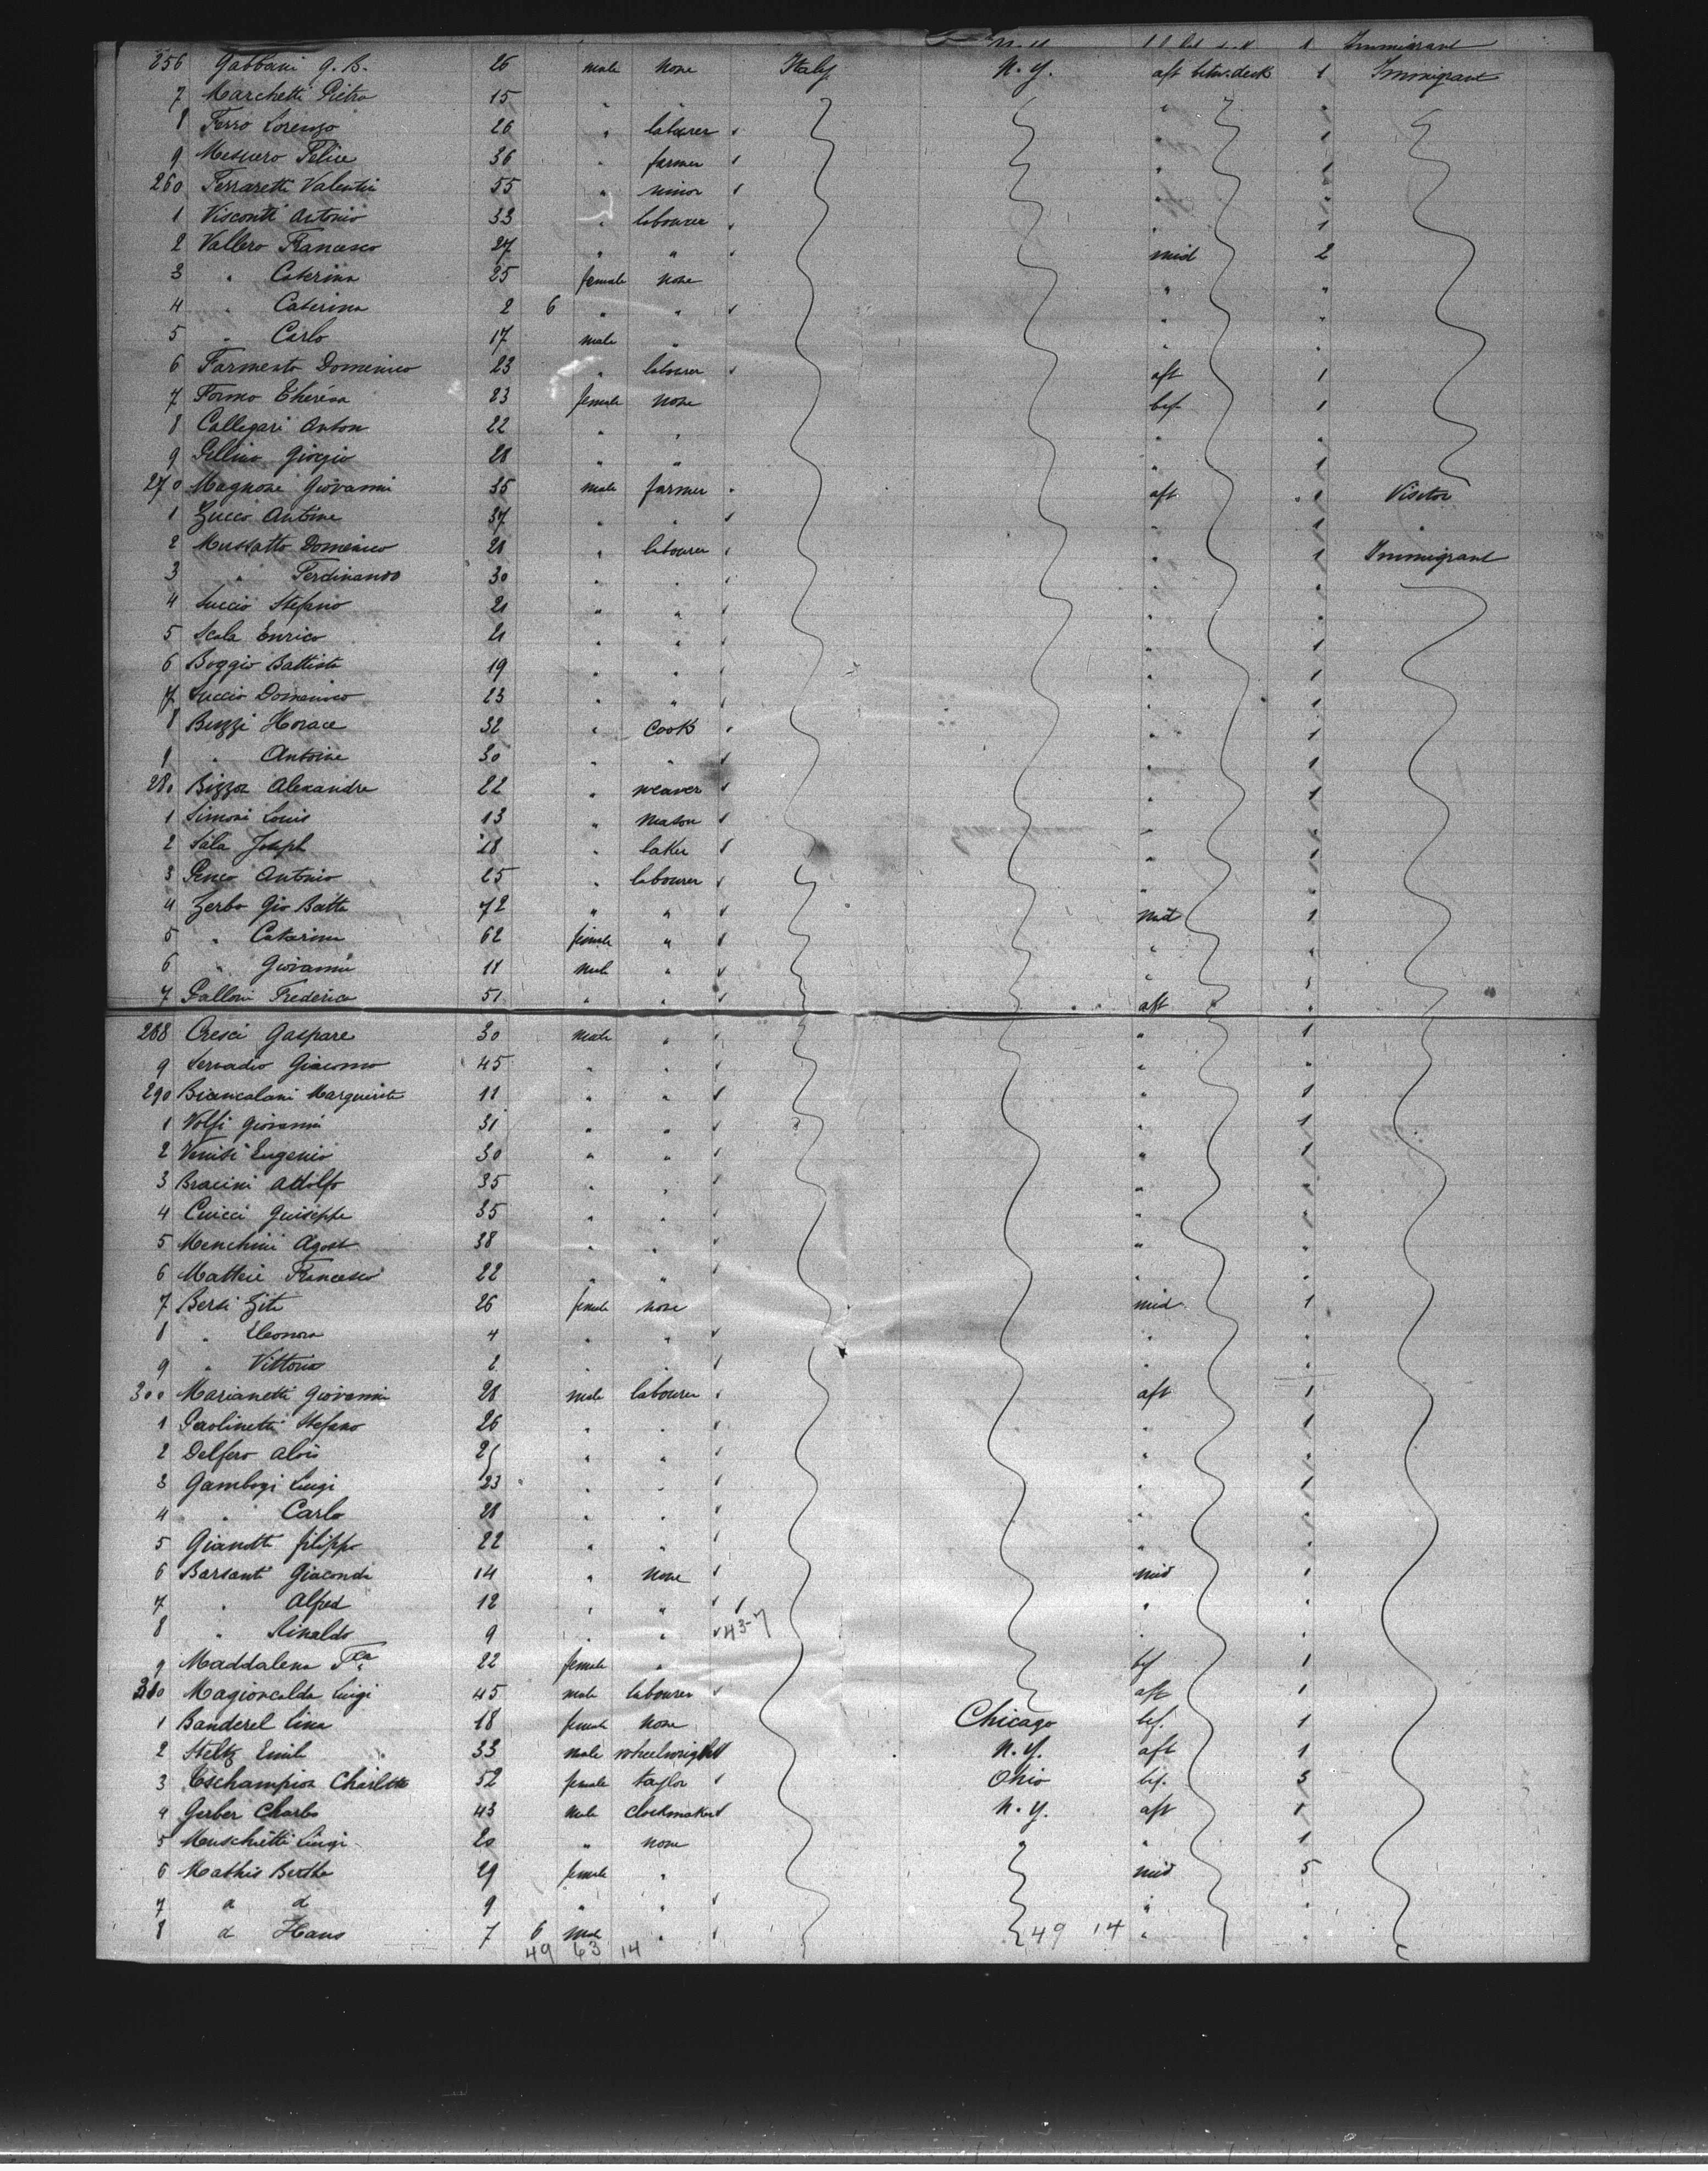 Immigrant
256 Gabbani G. B. 26 male none Italy N. Y. aft betw. deck 1 Immigrant
7 Marchetti Pietro 15 " " " "
8 Ferro Lorenzo 26 " labourer " 1
9 Mesuero Felice 36 " farmer " 1
260 Ferraretti Valentin 55 " minor "
1 Visconti Antonio 33 " labourer " 1
2 Vallero Francesco 27 " " mid 2
3 " Caterina 25 female none " "
4 " Caterina 2 6 " " " "
5 " Carlo 17 male " " "
6 Farmento Domenico 23 " labourer aft 1
7 Formo Therésa 23 female none bef. 1
8 Callegari Anton 22 " " " "
9 Pellino Giorgio 28 " " " 1
270 Magnone Giovanni 35 male farmer aft 1 Visitor
1 Zucco Antoine 37 " " " 1 "
2 Mussatto Domenico 28 " labourer " 1 Immigrant
3 " Ferdinando 30 " " " "
4 Succio Stefano 21 " " " "
5 Scala Enrico 21 " " " 1
6 Boggio Battista 19 " " " 1
7 Succio Domenico 23 " " " 1
8 Buzzi Horace 32 " Cook " 1
9 " Antoine 30 " " " 1
280 Bizzoz Alexandre 22 " weaver " 1
1 Simoni Louis 13 " mason " "
2 Sala Joseph 28 " baker " 1
3 Penco Antonio 25 " labourer " "
4 Zerbo Gio Batta 72 " " mid 1
5 " Catarina 62 female " " "
6 " Giovanni 11 male " " "
7 Galloni Frederico 51 " " aft "
288 Cresci Gaspare 30 male " " 1
9 Servadio Giacomo 45 " " " "
290 Biancalani Marguerite 11 " " " 1
1 Volfi Giovanni 31 " " " 1
2 Venisi Eugenio 30 " " " 1
3 Bracini Adolfo 35 " " " "
4 Cuicci Guiseppe 35 " " " "
5 Menchini Agost 38 " " " "
6 Matteie Francesco 22 " " " "
7 Bersi Zita 26 female none mid 1
8 " Eleonora 4 " " " "
9 " Vittoria 2 " " " "
300 Marianetti Giovanni 28 male labourer aft 1
1 Paolinetti Stefano 26 " " " 1
2 Delfero Alois 25 " " " "
3 Gambogi Luigi 23 " " " 1
4 " Carlo 28 " " " "
5 Gianotti filippo 22 " " " "
6 Barsanti Giaconda 14 " none mid 1
7 " Alfred 12 " " " "
8 " Rinaldo 9 " " 43-7 " "
9 Maddalena Fca 22 female " bef 1
310 Magioncalda Luigi 45 male labourer aft 1
1 Banderel Lina 18 female none Chicago bef. 1
2 Steltz Emil 33 male wheelwright N. Y. aft 1
3 Eschampion Charlotte 52 female taylor Ohio bef. 3
4 Gerber Charles 43 male clockmaker N. Y. aft 1
5 Muschietti Luigi 20 " none " 1
6 Mathis Berthe 29 female " mid 5
7 d d 9 " " " "
8 d Hans 7 6 male " 49 14 " "
49 63 14